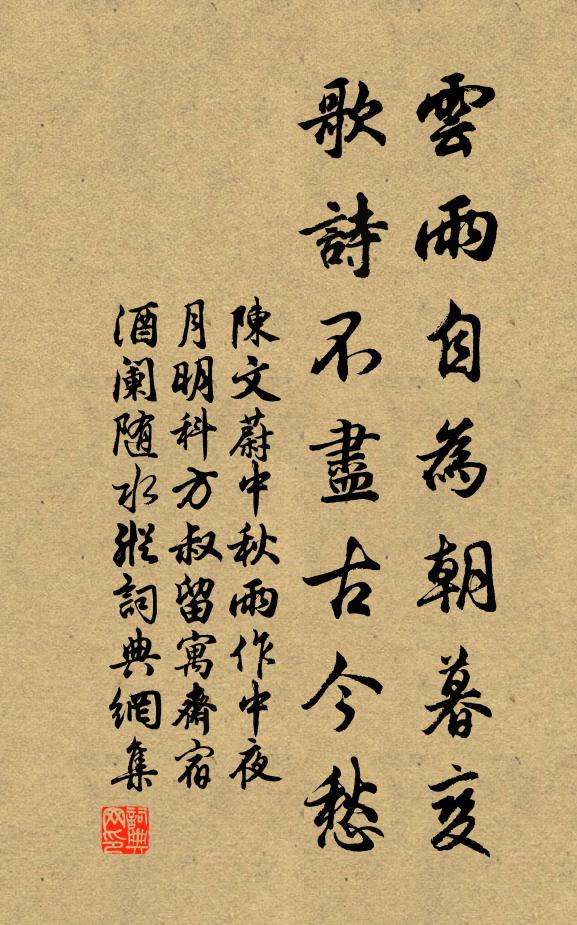 雲雨自為朝暮变
歌詩不盡古今愁
陳文蔚中秋雨作中夜
月明科方叔留寓齋宿
酒阑随水縱詞典網集
詞典网印